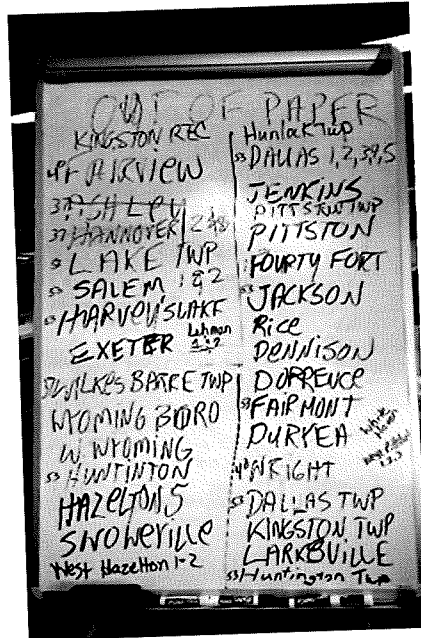 OUT OF PAPER
KINGSTON REC
49 FAIRVIEW
37 ASHLEY
37 HANNOVER 1 2 4 3
LAKE TWP
53 SALEM 1 & 2
HARVEY'S LAKE
EXETER Lehman 1 & 2
WILKES BARRE TWP
WYOMING BORO
W WYOMING
53 HUNTINTON
HAZELTON 5
Swoyerville
West Hazelton 1-2
Hunlock Twp
53 DALLAS 1, 2, 3, 4, 5
JENKINS
PITTSTON TWP
PITTSTON
FOURTY FORT
53 JACKSON
Rice
DENNISON
DORRENCE
53 FAIRMONT
DURYEA
White Haven
West Pittston 1 2 3
49 WRIGHT
53 DALLAS TWP
KINGSTON TWP
LARKSVILLE
53 Huntington Twp